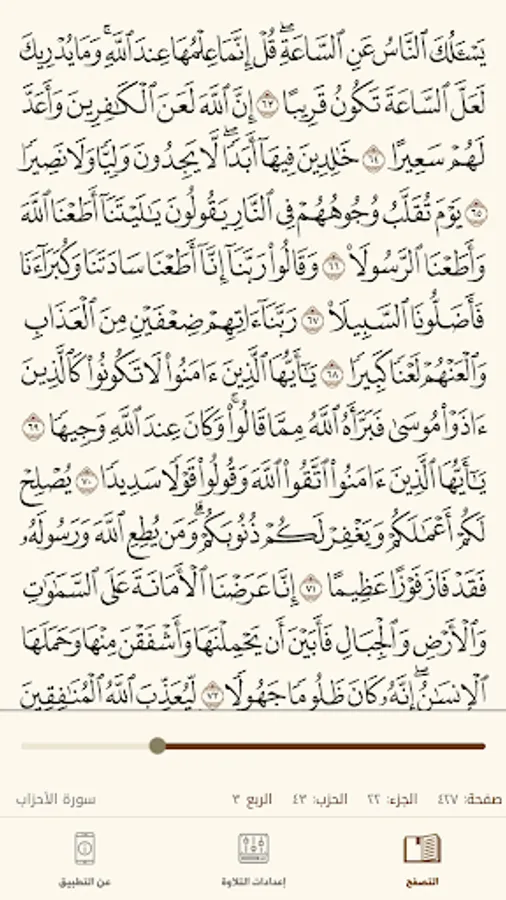 يَسْـَٔلُكَ ٱلنَّاسُ عَنِ ٱلسَّاعَةِۖ قُلْ إِنَّمَا عِلْمُهَا عِندَ ٱللَّهِۚ وَمَا يُدْرِيكَ
لَعَلَّ ٱلسَّاعَةَ تَكُونُ قَرِيبًا ٦٣ إِنَّ ٱللَّهَ لَعَنَ ٱلْكَٰفِرِينَ وَأَعَدَّ
لَهُمْ سَعِيرًا ٦٤ خَٰلِدِينَ فِيهَآ أَبَدًاۖ لَّا يَجِدُونَ وَلِيًّا وَلَا نَصِيرًا
٦٥ يَوْمَ تُقَلَّبُ وُجُوهُهُمْ فِى ٱلنَّارِ يَقُولُونَ يَٰلَيْتَنَآ أَطَعْنَا ٱللَّهَ
وَأَطَعْنَا ٱلرَّسُولَا۠ ٦٦ وَقَالُوا۟ رَبَّنَآ إِنَّآ أَطَعْنَا سَادَتَنَا وَكُبَرَآءَنَا
فَأَضَلُّونَا ٱلسَّبِيلَا۠ ٦٧ رَبَّنَآ ءَاتِهِمْ ضِعْفَيْنِ مِنَ ٱلْعَذَابِ
وَٱلْعَنْهُمْ لَعْنًا كَبِيرًا ٦٨ يَٰٓأَيُّهَا ٱلَّذِينَ ءَامَنُوا۟ لَا تَكُونُوا۟ كَٱلَّذِينَ
ءَاذَوْا۟ مُوسَىٰ فَبَرَّأَهُ ٱللَّهُ مِمَّا قَالُوا۟ۚ وَكَانَ عِندَ ٱللَّهِ وَجِيهًا ٦٩
يَٰٓأَيُّهَا ٱلَّذِينَ ءَامَنُوا۟ ٱتَّقُوا۟ ٱللَّهَ وَقُولُوا۟ قَوْلًا سَدِيدًا ٧٠ يُصْلِحْ
لَكُمْ أَعْمَٰلَكُمْ وَيَغْفِرْ لَكُمْ ذُنُوبَكُمْۗ وَمَن يُطِعِ ٱللَّهَ وَرَسُولَهُۥ
فَقَدْ فَازَ فَوْزًا عَظِيمًا ٧١ إِنَّا عَرَضْنَا ٱلْأَمَانَةَ عَلَى ٱلسَّمَٰوَٰتِ
وَٱلْأَرْضِ وَٱلْجِبَالِ فَأَبَيْنَ أَن يَحْمِلْنَهَا وَأَشْفَقْنَ مِنْهَا وَحَمَلَهَا
ٱلْإِنسَٰنُۖ إِنَّهُۥ كَانَ ظَلُومًا جَهُولًا ٧٢ لِّيُعَذِّبَ ٱللَّهُ ٱلْمُنَٰفِقِينَ
صفحة: ٤٢٧ الجزء: ٢٢ الحزب: ٤٣ الربع ٣ سورة الأحزاب
التصفح إعدادات التلاوة عن التطبيق